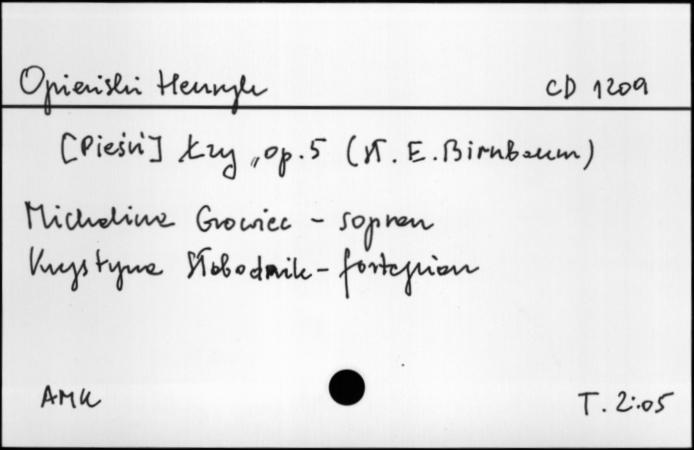 Opieński Henryk CD 1209
[Pieśń] Łzy, op.5 (sł. E. Birnbaum)
Michalina Growiec - sopran
Krystyna Słobodnik - fortepian
AMK T. 2:05